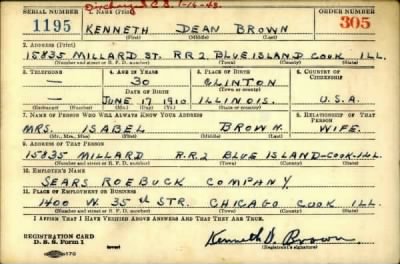 Discharged C.B. 1-16-45.
SERIAL NUMBER 1. NAME (Print) ORDER NUMBER
1195 KENNETH DEAN BROWN 305
2. ADDRESS (Print)
15835 MILLARD ST. R R 2 BLUE ISLAND COOK ILL.
(Number and street or R. F. D. number) (Town) (County) (State)
3. TELEPHONE 4. AGE IN YEARS 5. PLACE OF BIRTH 6. COUNTRY OF CITIZENSHIP
— 30 CLINTON
DATE OF BIRTH (Town or county)
— JUNE 17 1910 ILLINOIS. U.S.A.
(Exchange) (Number) (Mo.) (Day) (Yr.) (State or country)
7. NAME OF PERSON WHO WILL ALWAYS KNOW YOUR ADDRESS 8. RELATIONSHIP OF THAT PERSON
MRS. ISABEL BROWN. WIFE.
(Mr., Mrs., Miss) (First) (Middle) (Last)
9. ADDRESS OF THAT PERSON
15835 MILLARD R.R.2 BLUE ISLAND-COOK-ILL.
(Number and street or R. F. D. number) (Town) (County) (State)
10. EMPLOYER'S NAME
SEARS ROEBUCK COMPANY
11. PLACE OF EMPLOYMENT OR BUSINESS
1400 W. 35th STR. CHICAGO COOK ILL.
(Number and street or R. F. D. number) (Town) (County) (State)
I AFFIRM THAT I HAVE VERIFIED ABOVE ANSWERS AND THAT THEY ARE TRUE.
REGISTRATION CARD
D. S. S. Form 1
Kenneth D. Brown.
(Registrant's signature)